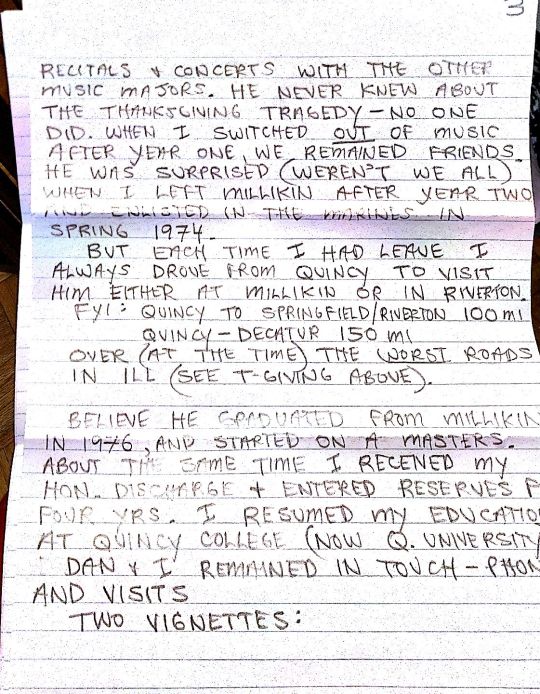 3
RECITALS & CONCERTS WITH THE OTHER
MUSIC MAJORS. HE NEVER KNEW ABOUT
THE THANKSGIVING TRAGEDY – NO ONE
DID. WHEN I SWITCHED OUT OF MUSIC
AFTER YEAR ONE, WE REMAINED FRIENDS.
HE WAS SURPRISED (WEREN'T WE ALL)
WHEN I LEFT MILLIKIN AFTER YEAR TWO
AND ENLISTED IN THE MARINES IN
SPRING 1974.
BUT EACH TIME I HAD LEAVE I
ALWAYS DROVE FROM QUINCY TO VISIT
HIM EITHER AT MILLIKIN OR IN RIVERTON.
FYI: QUINCY TO SPRINGFIELD/RIVERTON 100 MI
QUINCY – DECATUR 150 MI
OVER (AT THE TIME) THE WORST ROADS
IN ILL (SEE T-GIVING ABOVE).
BELIEVE HE GRADUATED FROM MILLIKIN
IN 1976, AND STARTED ON A MASTERS.
ABOUT THE SAME TIME I RECEIVED MY
HON. DISCHARGE + ENTERED RESERVES F
FOUR YRS. I RESUMED MY EDUCATIO
AT QUINCY COLLEGE (NOW Q. UNIVERSITY
DAN & I REMAINED IN TOUCH – PHON
AND VISITS
TWO VIGNETTES: